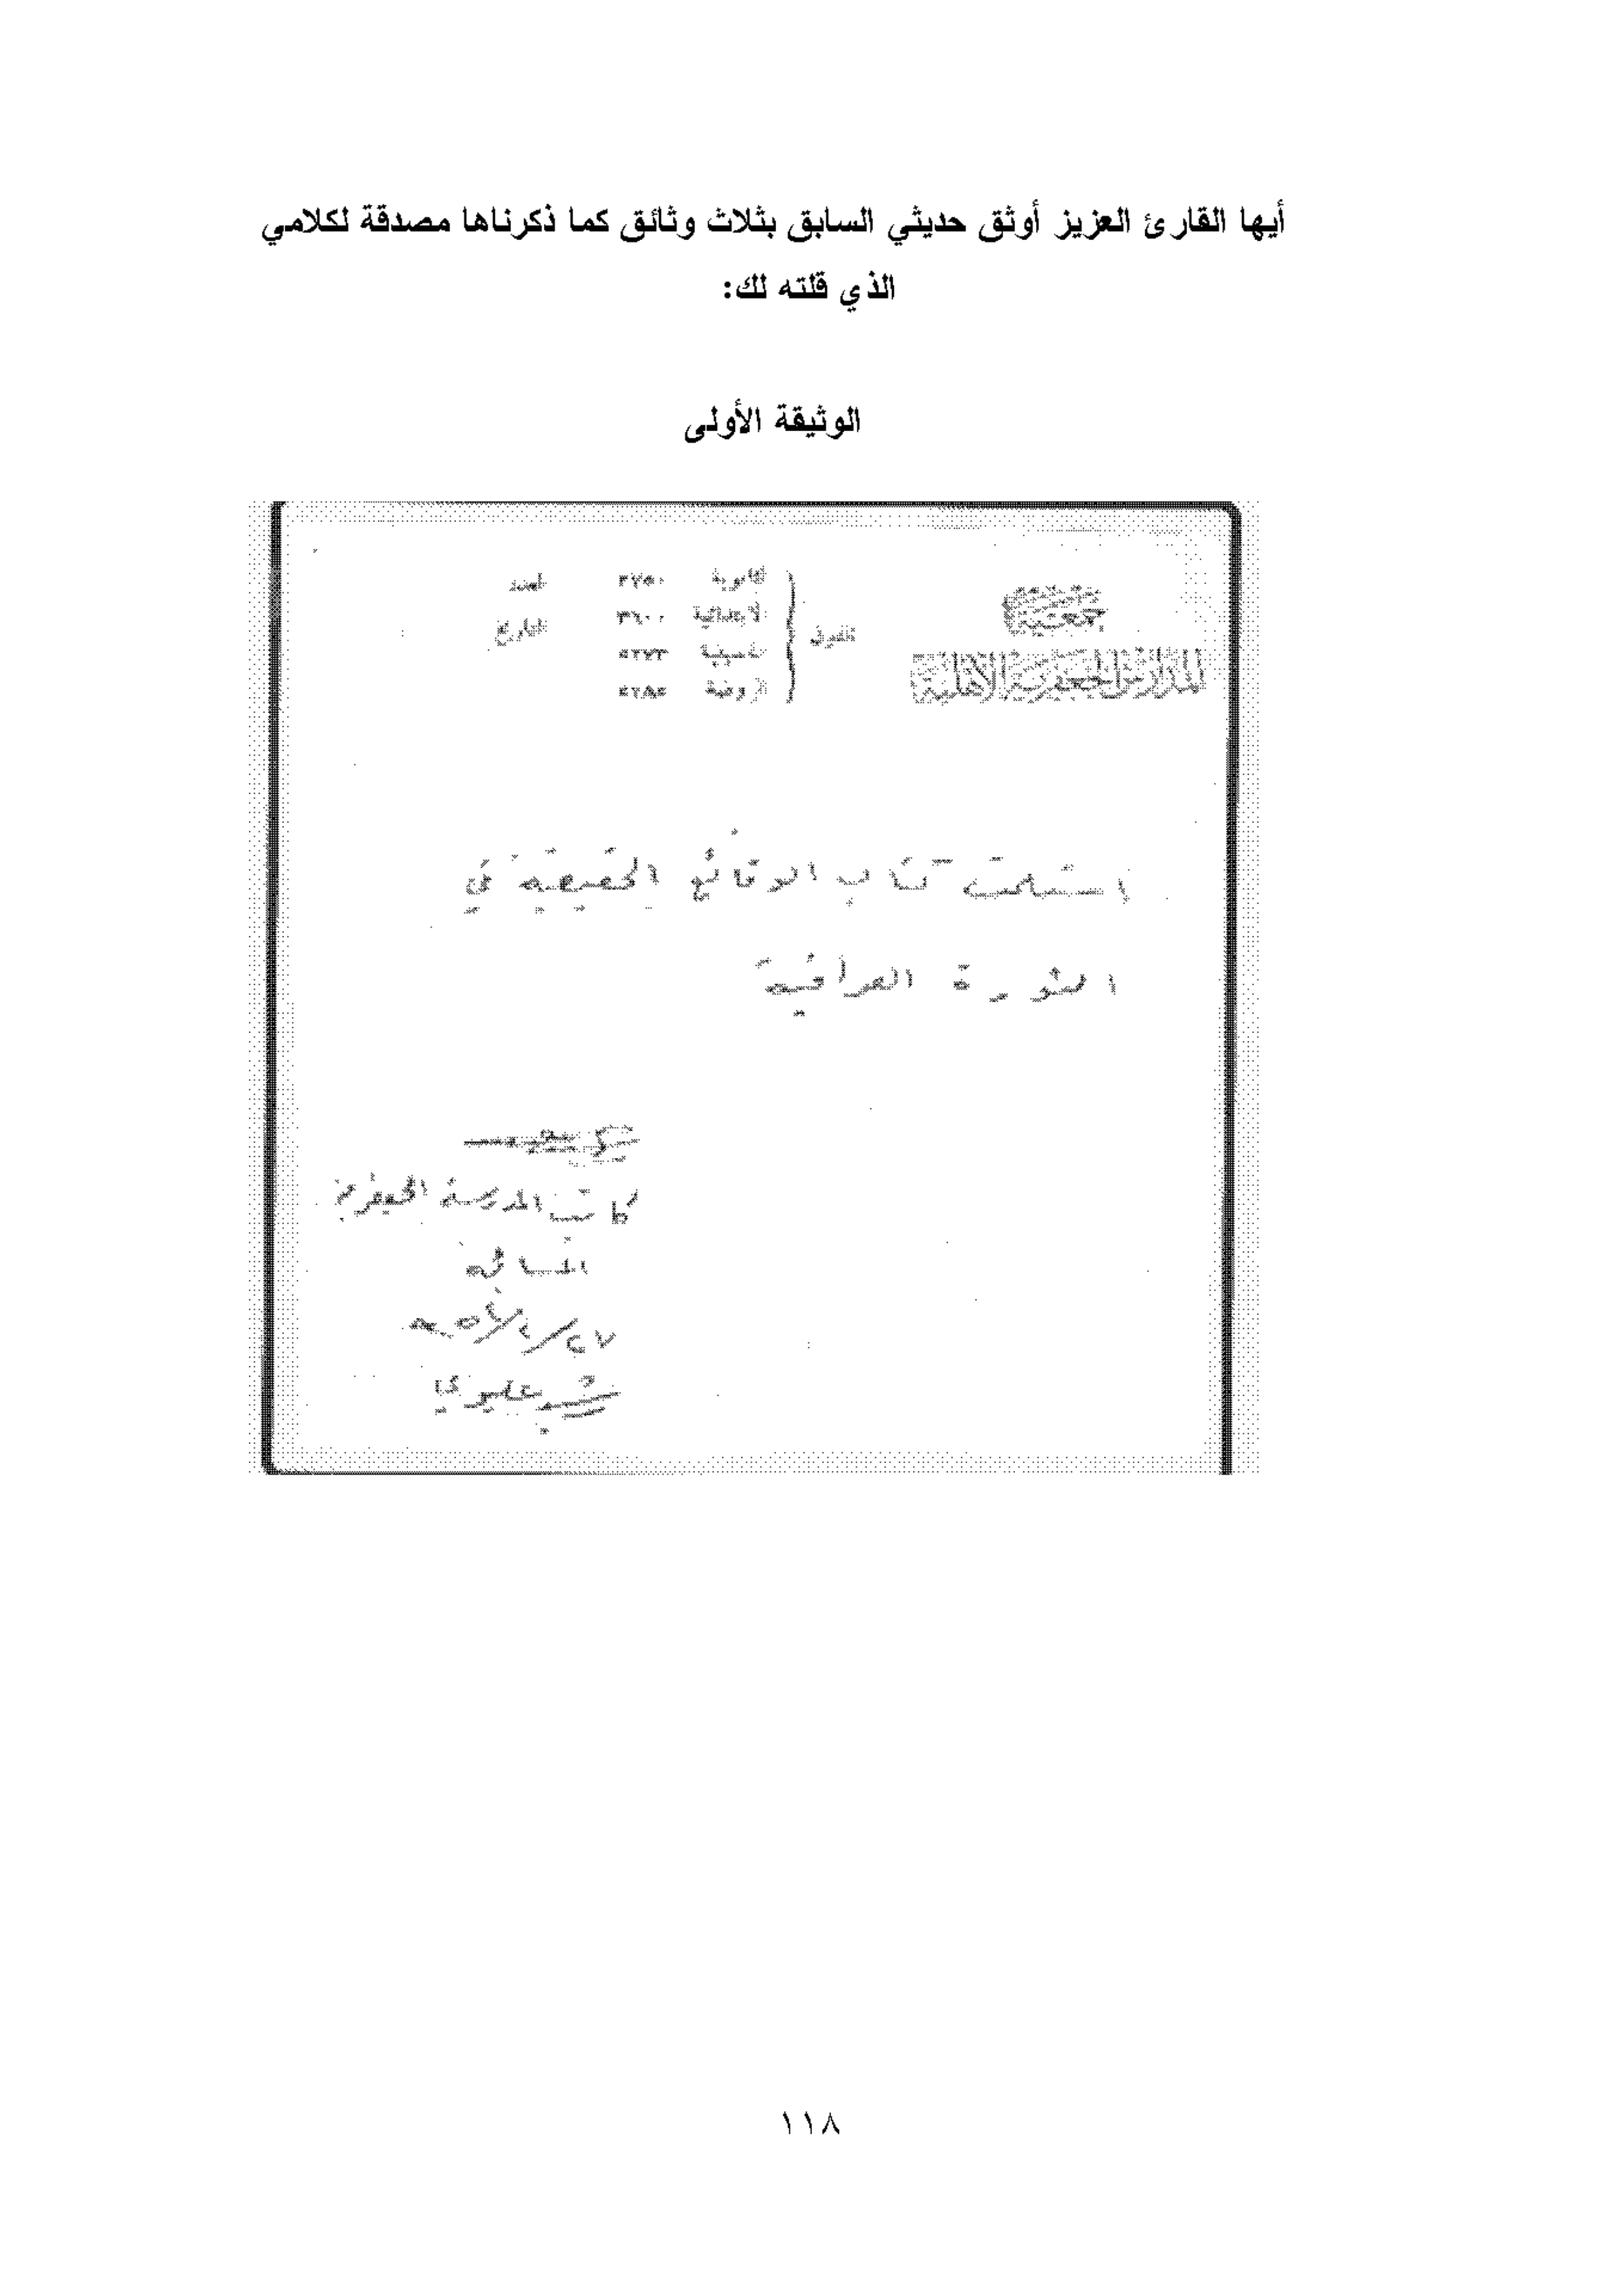 أيها القارئ العزيز أوثق حديثي السابق بثلاث وثائق كما ذكرناها مصدقة لكلامي
الذي قلته لك:
الوثيقة الأولى
جمعية
المدارس الجعفرية الأهلية
تلفون
الثانوية ٣٧٥٠
الابتدائية ٣٦٠٠
الروضة
العدد
التاريخ
استلمت كتاب الوقائع الحقيقية في
الثورة العراقية
كاتب المدرسة الجعفرية
المسائية
١١٨